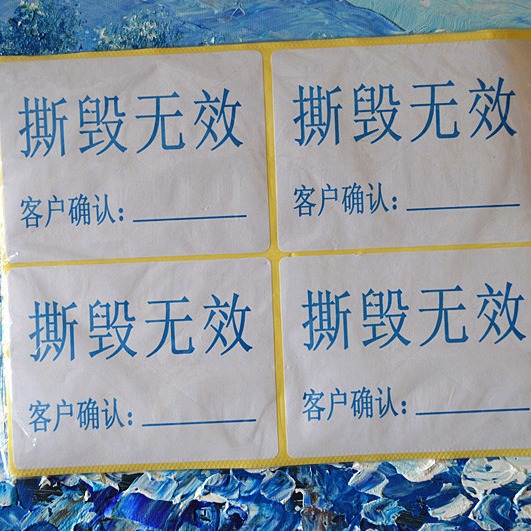 撕毁无效
客户确认：
撕毁无效
客户确认：
撕毁无效
客户确认：
撕毁无效
客户确认：